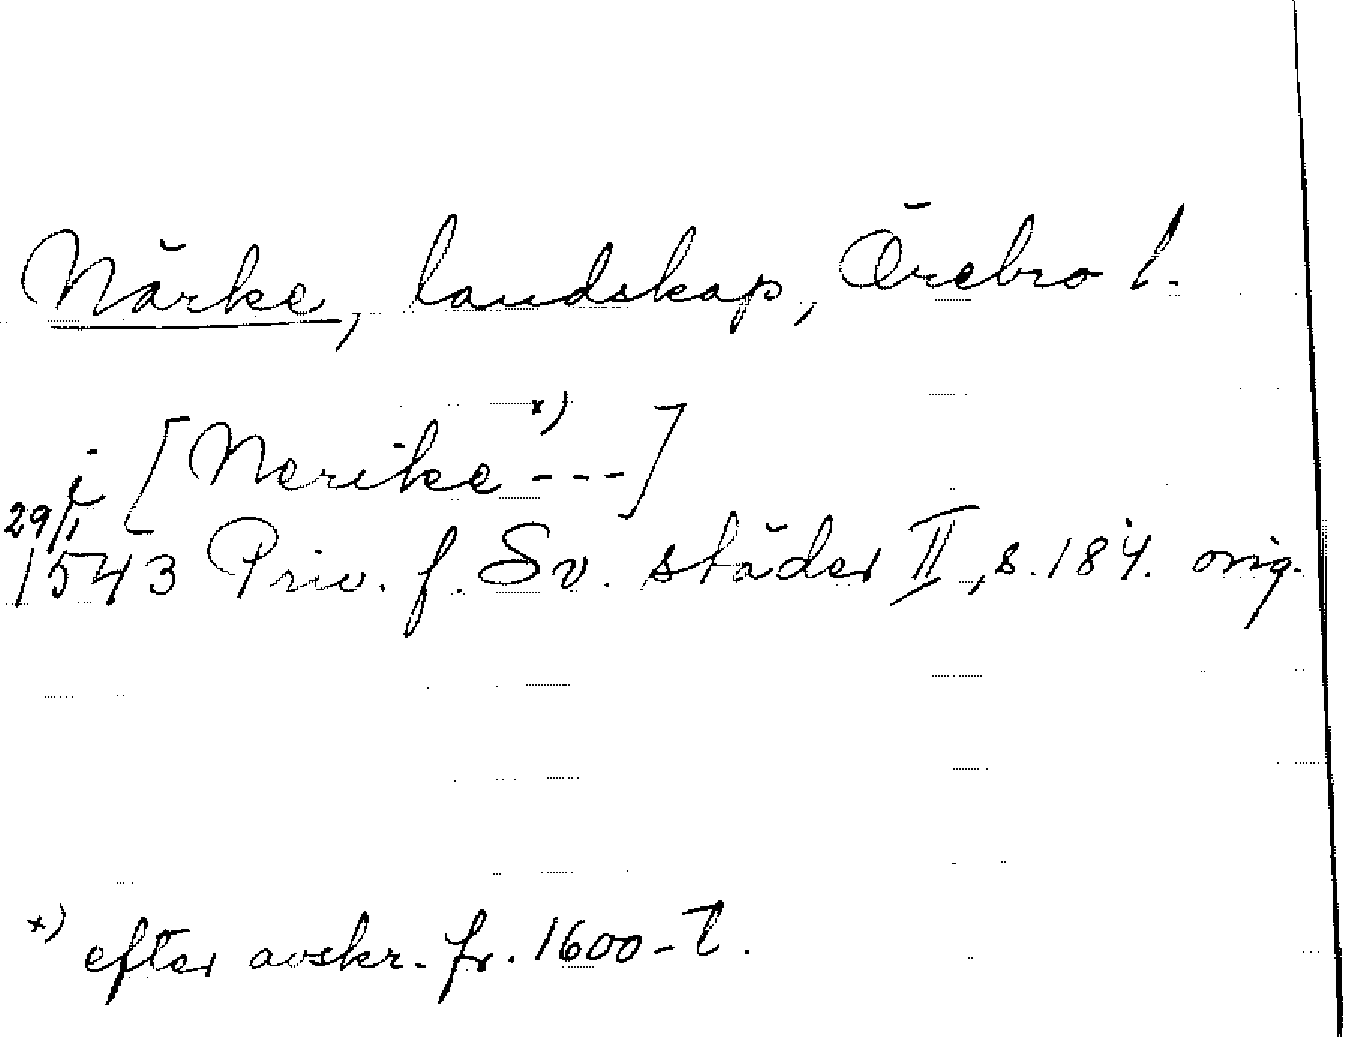 Närke, landskap, Örebro l.
i [Nerike *) - - -]
29/1 1543 Priv. f. Sv. städer II, s. 184. orig.
*) efter avskr. fr. 1600-t.